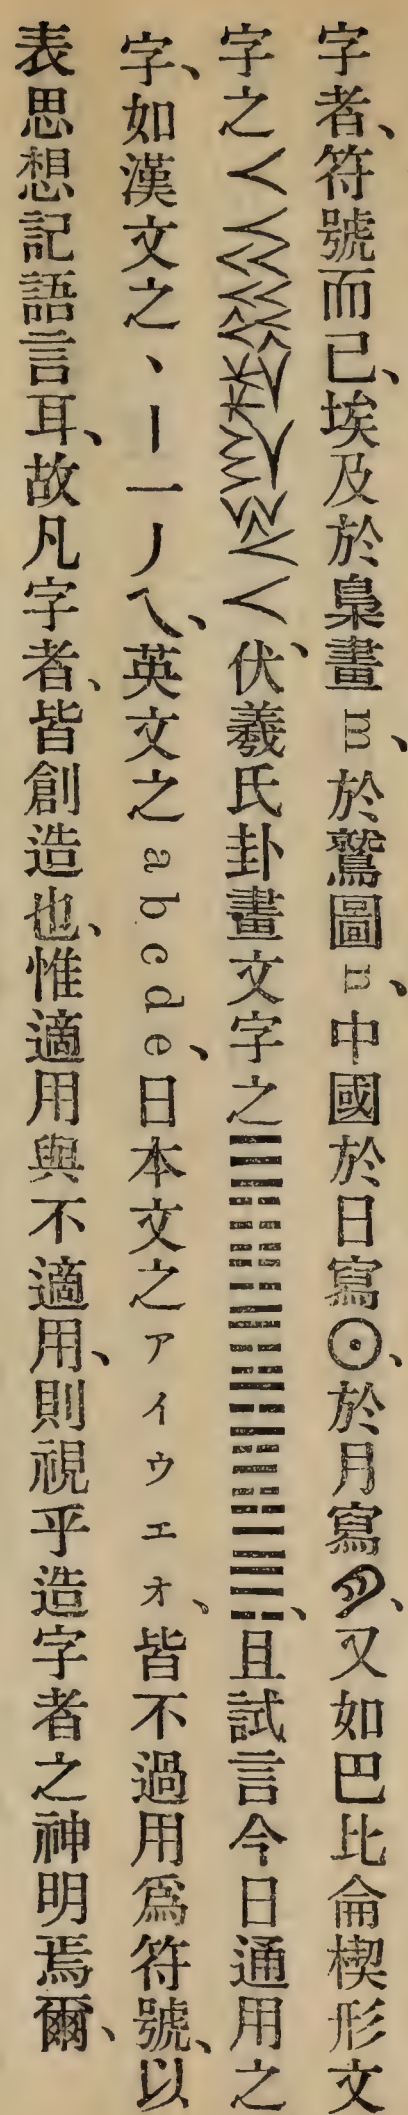 字者、符號而已、埃及於梟畫m、於鷲圖n、中國於日寫☉、於月寫、又如巴比侖楔形文
字之伏羲氏卦畫文字之☰☷☳☶☲☵☱☴、且試言今日通用之
字、如漢文之、丨一丿乀、英文之abcde、日本文之アイウエオ、皆不過用爲符號、以
表思想記語言耳、故凡字者、皆創造也、惟適用與不適用、則視乎造字者之神明焉爾、